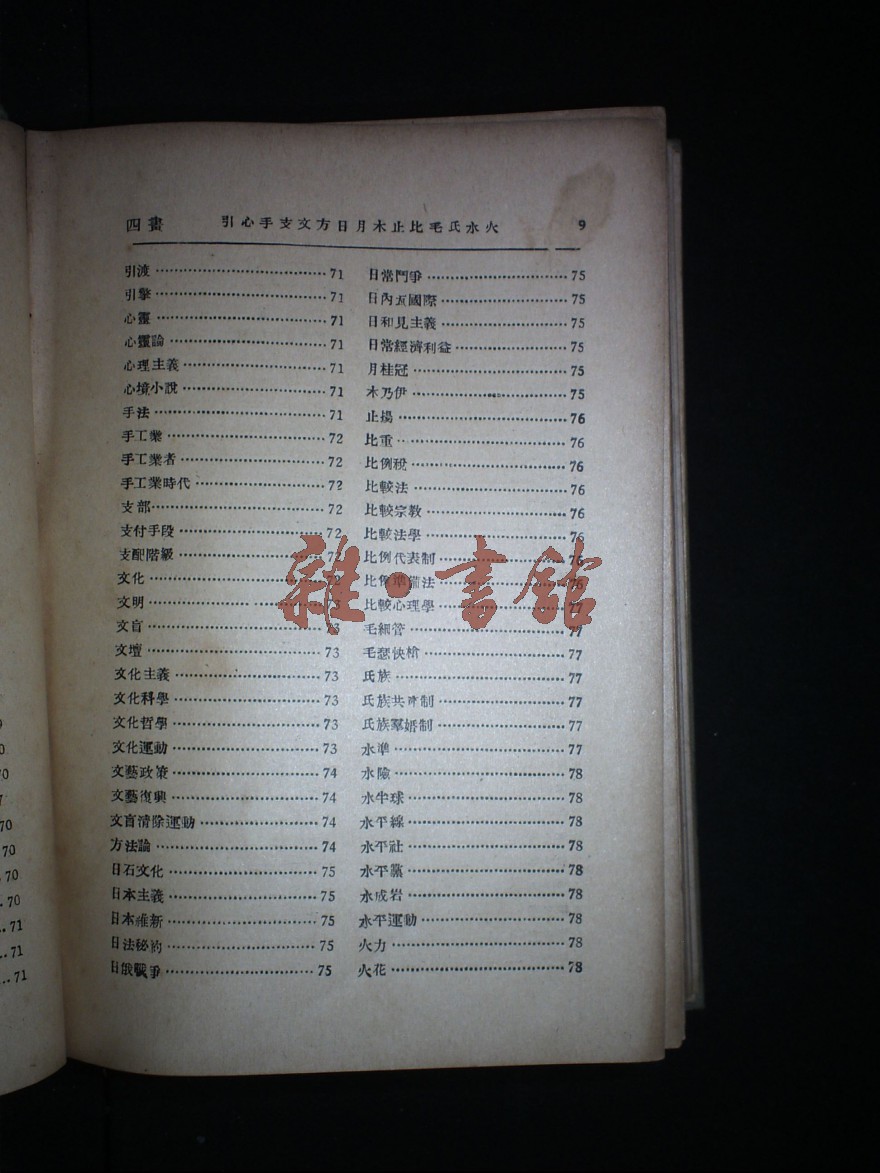 四畫 引心手支文方日月木止比毛氏水火 9
引渡 71
引擎 71
心靈 71
心靈論 71
心理主義 71
心境小說 71
手法 71
手工業 72
手工業者 72
手工業時代 72
支部 72
支付手段 72
支配階級 72
文化 72
文明 73
文盲 73
文壇 73
文化主義 73
文化科學 73
文化哲學 73
文化運動 73
文藝政策 74
文藝復興 74
文盲清除運動 74
方法論 74
日石文化 75
日本主義 75
日本維新 75
日法秘約 75
日俄戰爭 75
日常鬥爭 75
日內瓦國際 75
日和見主義 75
日常經濟利益 75
月桂冠 75
木乃伊 75
止揚 76
比重 76
比例稅 76
比較法 76
比較宗教 76
比較法學 76
比例代表制 76
比例準備法 76
比較心理學 77
毛細管 77
毛瑟快槍 77
氏族 77
氏族共產制 77
氏族羣婚制 77
水準 77
水險 78
水半球 78
水平線 78
水平社 78
水平黨 78
水成岩 78
水平運動 78
火力 78
火花 78
70
70
70
70
71
71
71
雜·書館